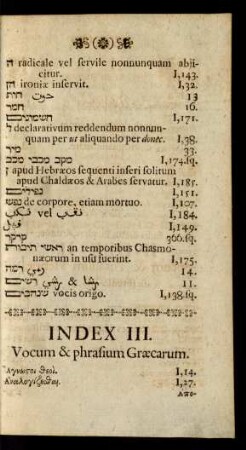 ה radicale vel servile nonnunquam abii-
citur. I,143.
הן ironiæ inservit. I,32.
חות 13
חמר 16.
חשמונים I,171.
ל declarativum reddendum nonnun-
quam per ut aliquando per donec. I,38.
מיר 33.
מקב מכבי מכב I,174.sq.
נ apud Hebræos sequenti inseri solitum
apud Chaldæos & Arabes servatur. I,185.
I,151.
נפש de corpore, etiam mortuo. I,107.
vel I,184.
I,149.
קרקר 366.sq.
ראשי תיבות an temporibus Chasmo-
næorum in usu fuerint. I,175.
רשה 14.
& רשים 11.
vocis origo. I,138.sq.
INDEX III.
Vocum & phrasium Græcarum.
Ἄγνωστοι θεοί. I,14.
Ἀναλογίζεσθαι. I,27.
Απο-